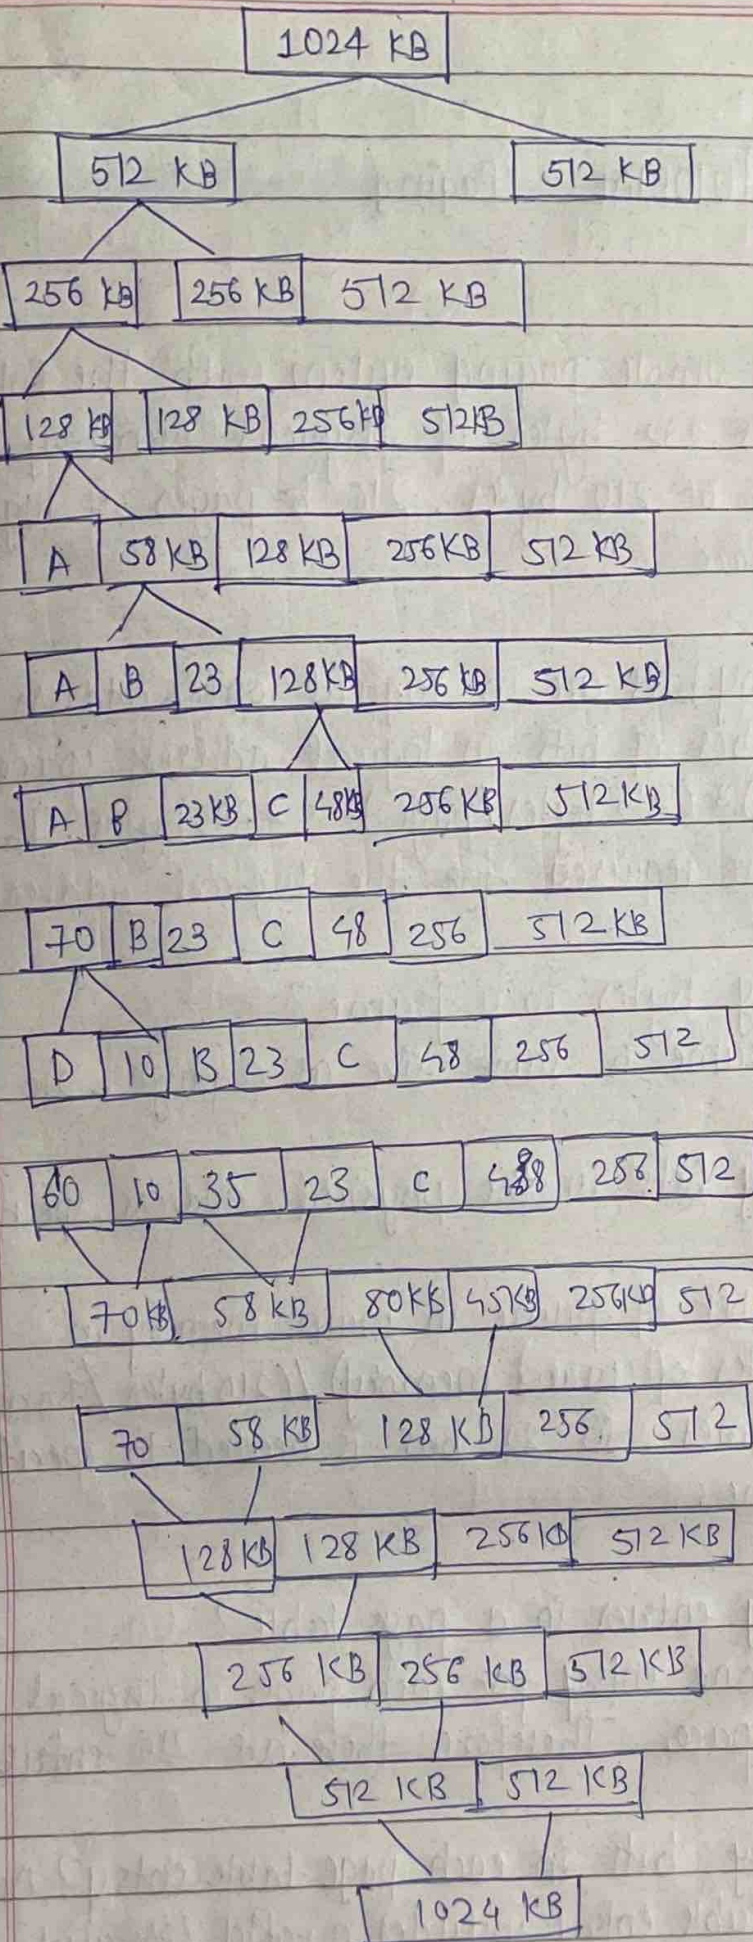 1024 KB
512 KB 512 KB
256 KB 256 KB 512 KB
128 KB 128 KB 256 KB 512KB
A 58 KB 128 KB 256KB 512 KB
A B 23 128KB 256 KB 512 KB
A B 23 KB C 48KB 256 KB 512 KB
70 B 23 C 48 256 512 KB
D 10 B 23 C 48 256 512
60 10 35 23 C 256 512
70 KB 58 KB 80KB 45KB 256KB 512
70 58 KB 128 KB 256. 512
128KB 128 KB 256 KB 512 KB
256 KB 256 KB 512 KB
512 KB 512 KB
1024 KB